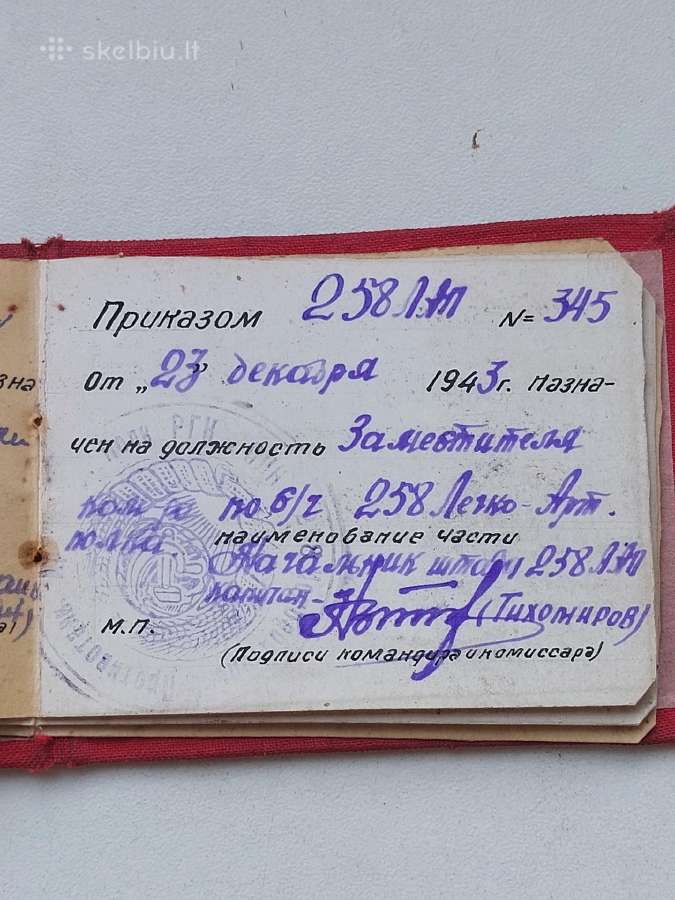 skelbiu.lt
Приказом 258 ЛАП №= 345
От „23" декабря 1943г. Назна-
чен на должность Заместителя
ком-ра по б/ч 258 Легко-Арт.
полка. наименование части
Начальник штаба 258 ЛАП
капитан (Тихомиров)
М.П.
(Подписи командира и комиссара)